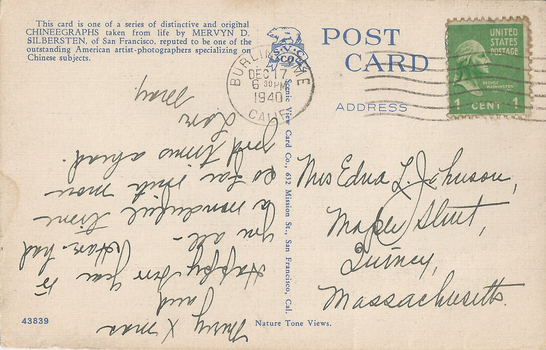 This card is one of a series of distinctive and original
CHINEEGRAPHS taken from life by MERVYN D.
SILBERSTEN, of San Francisco, reputed to be one of the
outstanding American artist-photographers specializing on
Chinese subjects.
S.V.C.
CO.
POST
CARD
ADDRESS
UNITED
STATES
POSTAGE
GEORGE
WASHINGTON
1 CENT 1
BURLINGAME
DEC 17
6 30 PM
1940
CALIF.
Mrs Edna L. Johnson,
Maple Street,
Quincy,
Massachusetts.
Merry Xmas
and
Happy New Year to
you all -
a wonderful time
so far much more
good times ahead.
Love
43839
Nature Tone Views.
Scenic View Card Co., 632 Mission St., San Francisco, Cal.